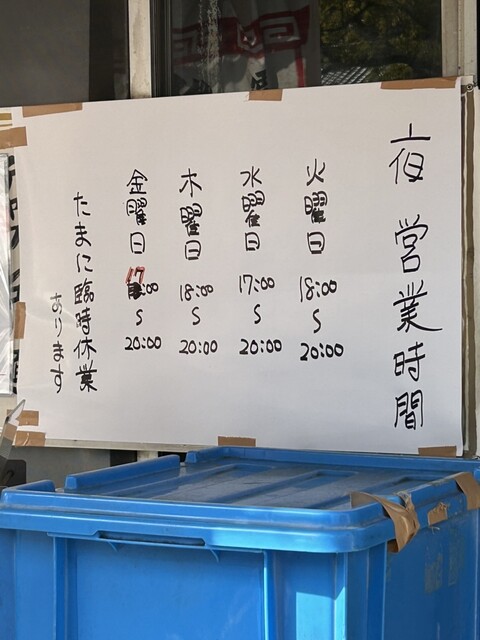 夜 営業時間
火曜日 18:00 〜 20:00
水曜日 17:00 〜 20:00
木曜日 18:00 〜 20:00
金曜日 17:00 〜 20:00
たまに臨時休業
あります